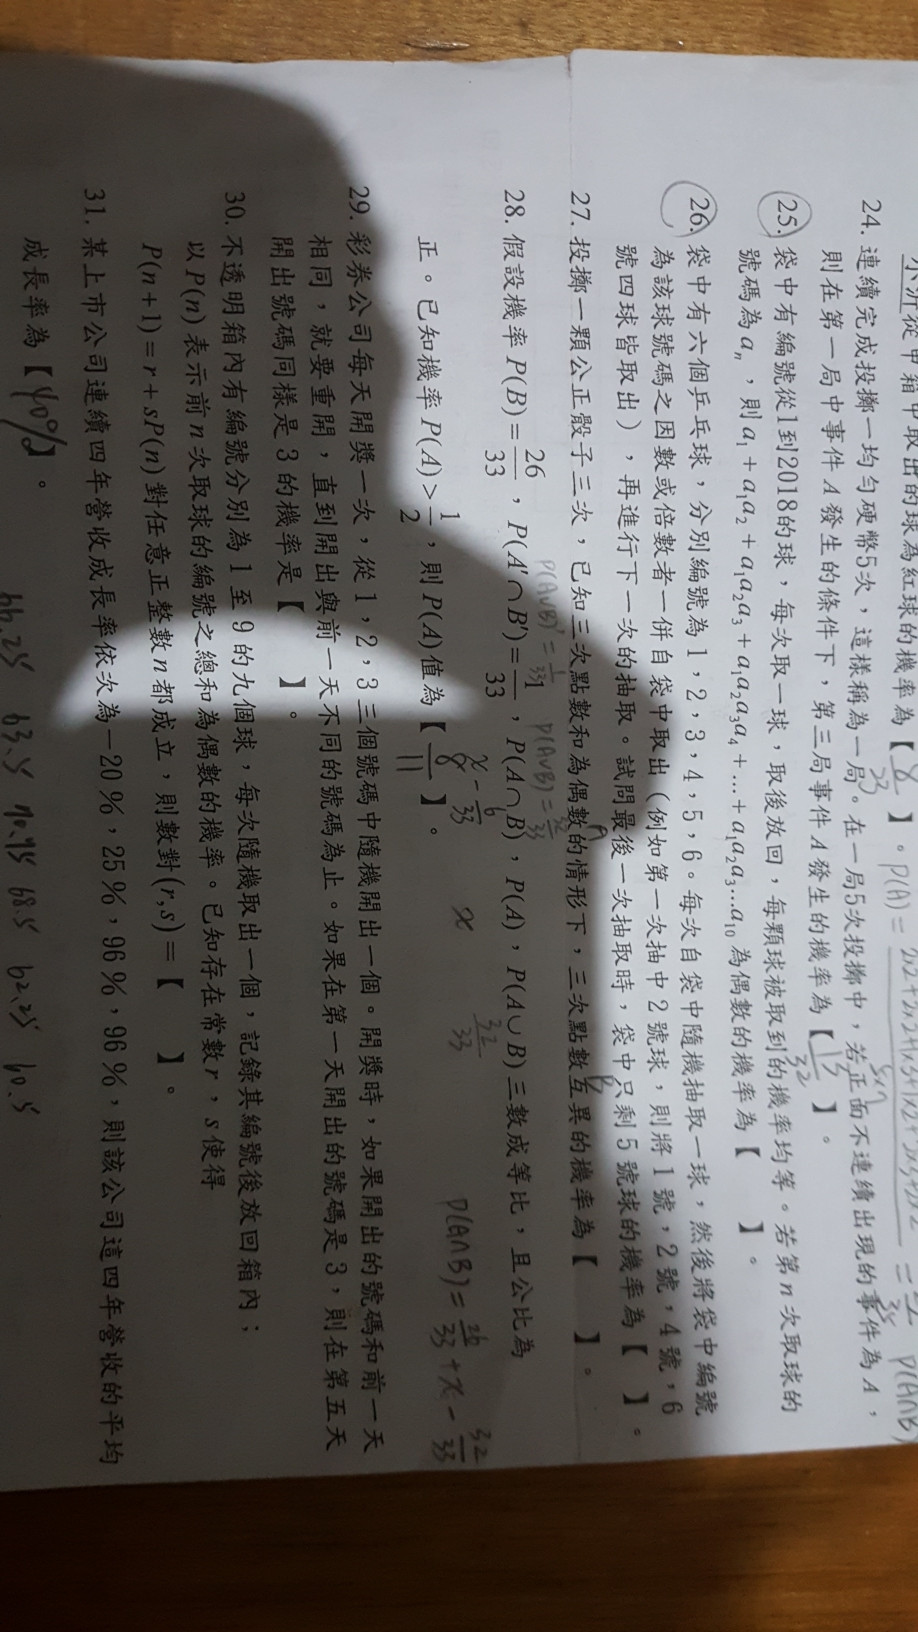 小沂從甲箱中取出的球為紅球的機率為【8/23】。P(A)=
24. 連續完成投擲一均勻硬幣5次,這樣稱為一局。在一局5次投擲中,若正面不連續出現的事件為A,
則在第一局中事件A發生的條件下,第三局事件A發生的機率為【13/32】。
25. 袋中有編號從1到2018的球,每次取一球,取後放回,每顆球被取到的機率均等。若第n次取球的
號碼為aₙ,則a₁+a₁a₂+a₁a₂a₃+a₁a₂a₃a₄+...+a₁a₂a₃...a₁₀為偶數的機率為【 】。
26. 袋中有六個乒乓球,分別編號為1,2,3,4,5,6。每次自袋中隨機抽取一球,然後將袋中編號
為該球號碼之因數或倍數者一併自袋中取出(例如第一次抽中2號球,則將1號,2號,4號,6
號四球皆取出),再進行下一次的抽取。試問最後一次抽取時,袋中只剩5號球的機率為【 】。
27. 投擲一顆公正骰子三次,已知三次點數和為偶數的情形下,三次點數互異的機率為【 】。
P(A∪B)'=1/33 P(A∪B)=32/33
28. 假設機率P(B)=26/33,P(A'∩B')=1/33,P(A∩B),P(A),P(A∪B)三數成等比,且公比為
x-6/33 x 32/33 P(A∩B)=26/33+x-32/33
正。已知機率P(A)>1/2,則P(A)值為【8/11】。
29. 彩券公司每天開獎一次,從1,2,3三個號碼中隨機開出一個。開獎時,如果開出的號碼和前一天
相同,就要重開,直到開出與前一天不同的號碼為止。如果在第一天開出的號碼是3,則在第五天
開出號碼同樣是3的機率是【 】。
30. 不透明箱內有編號分別為1至9的九個球,每次隨機取出一個,記錄其編號後放回箱內;
以P(n)表示前n次取球的編號之總和為偶數的機率。已知存在常數r,s使得
P(n+1)=r+sP(n)對任意正整數n都成立,則數對(r,s)=【 】。
31. 某上市公司連續四年營收成長率依次為-20%,25%,96%,96%,則該公司這四年營收的平均
成長率為【40%】。
66.25 63.5 70.95 68.5 62.25 60.5